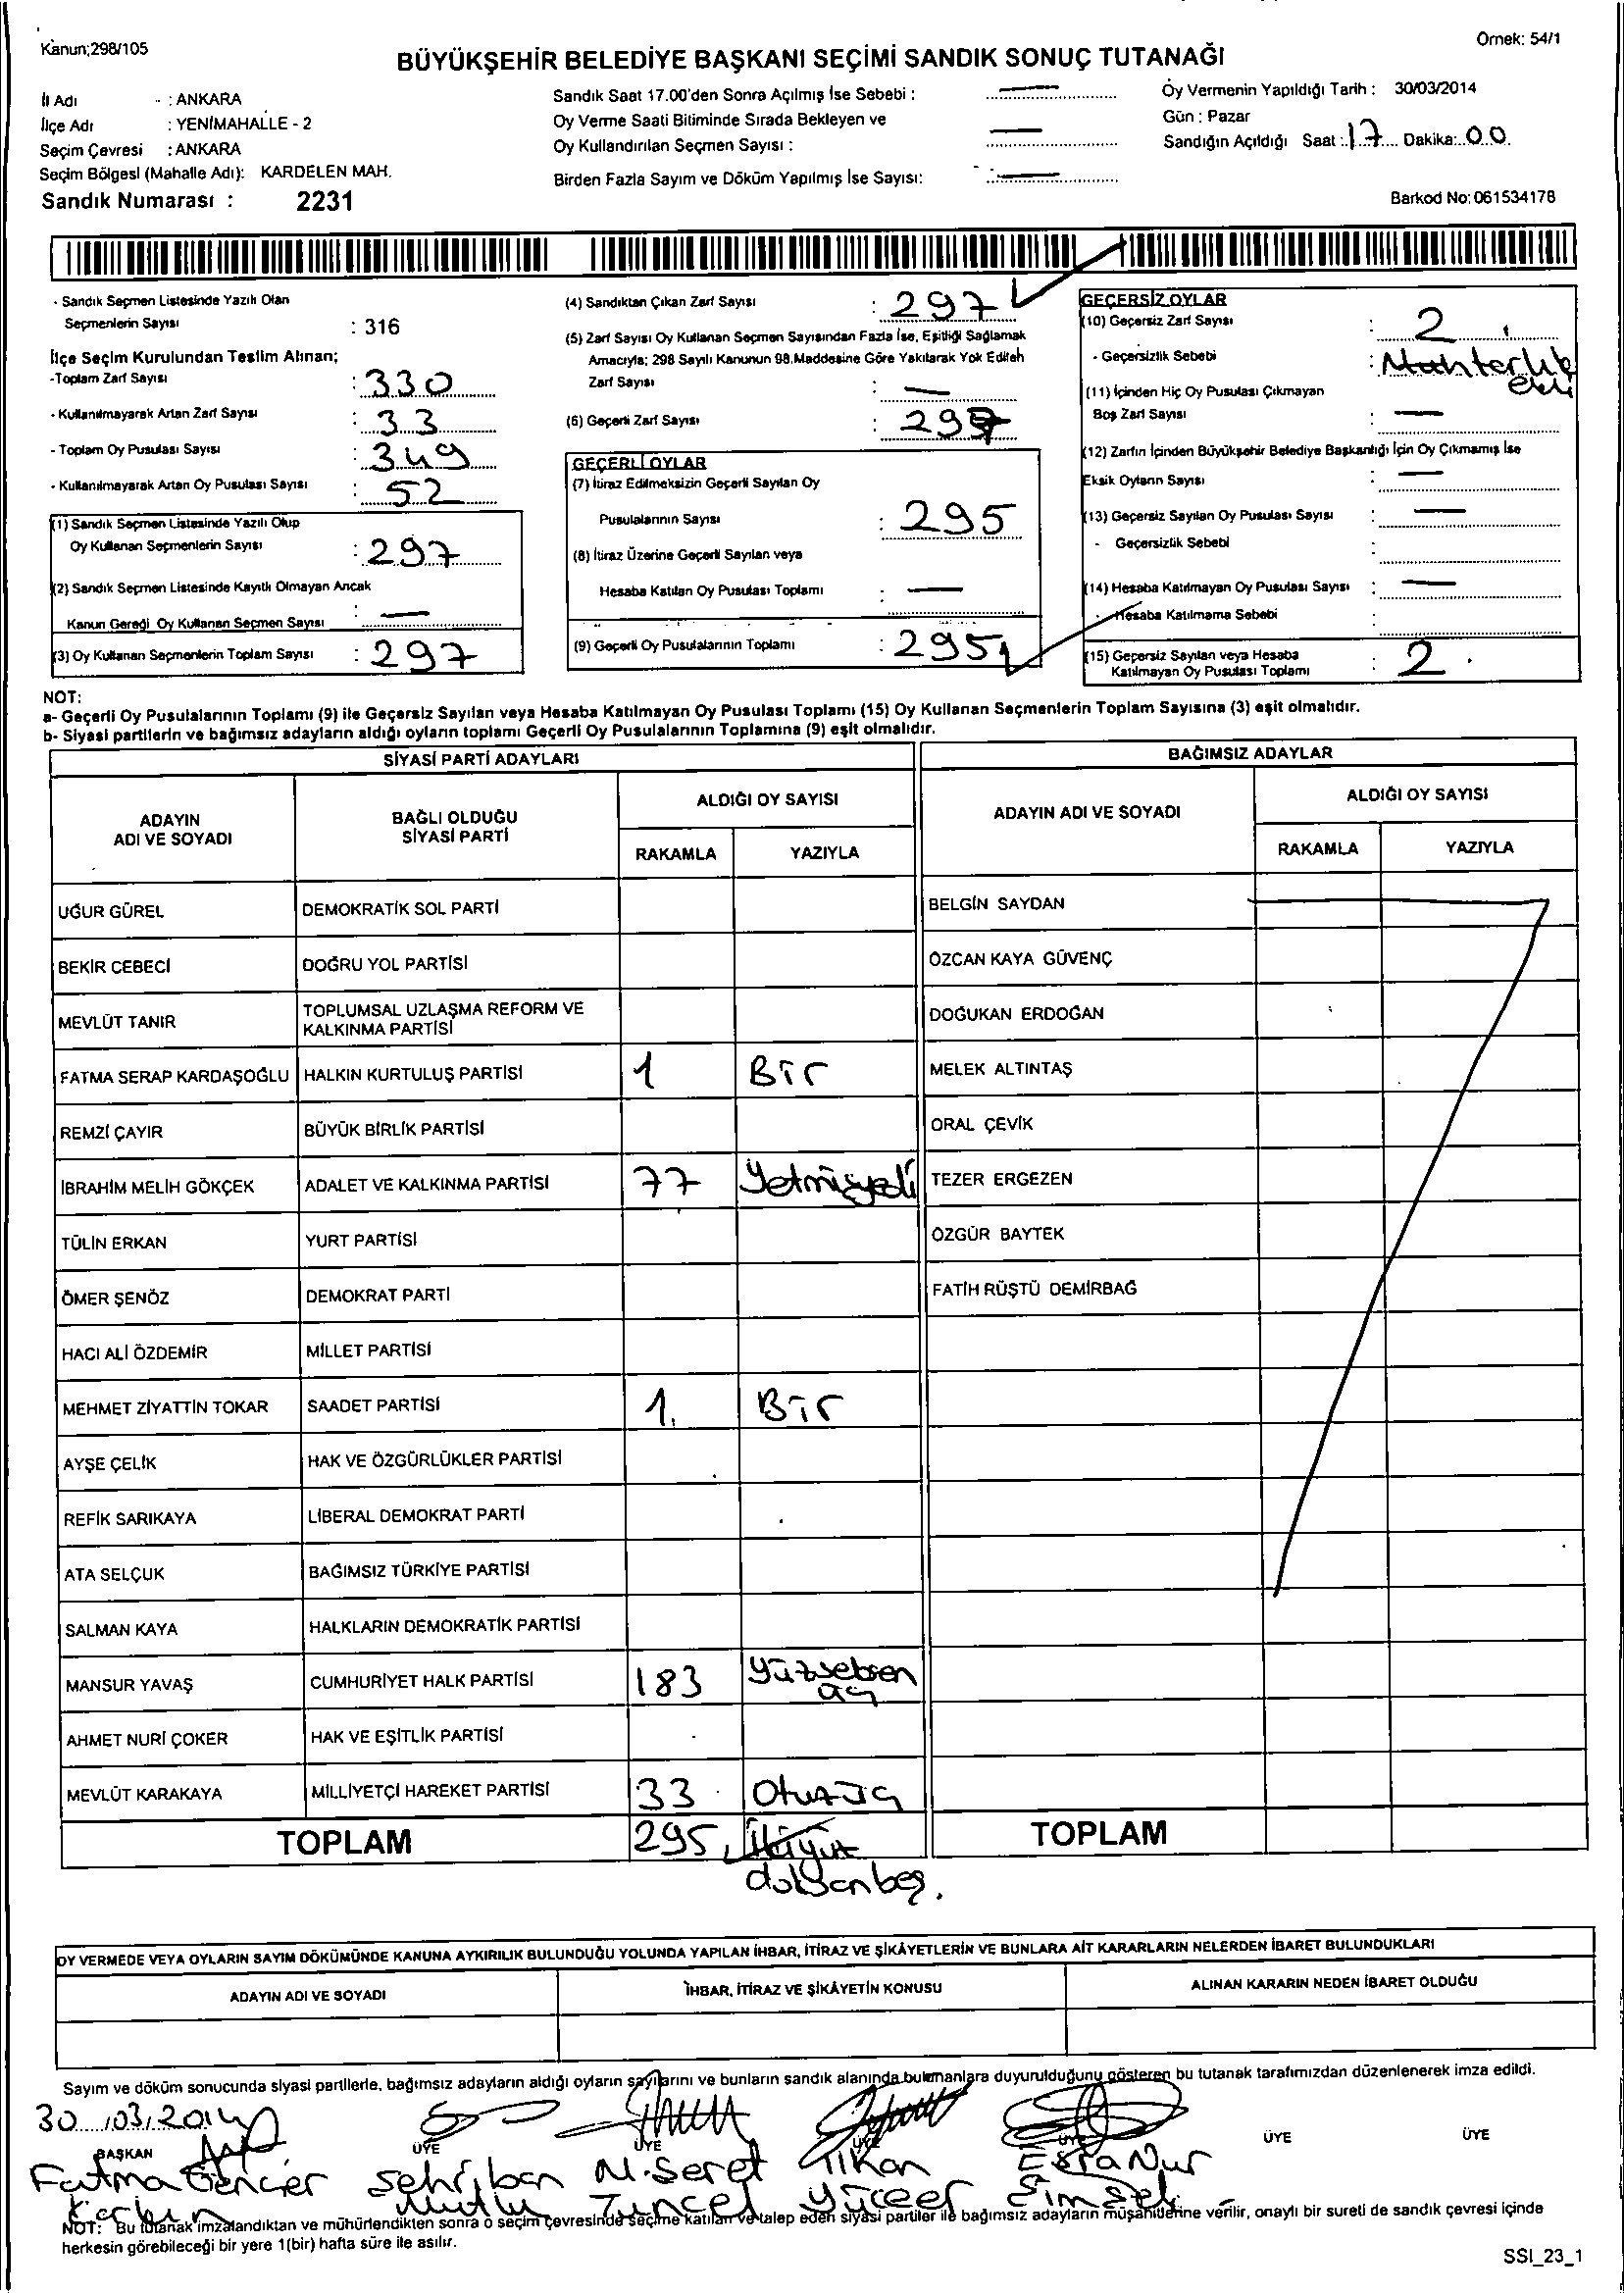 Kanun;298/105
Örnek: 54/1
BÜYÜKŞEHİR BELEDİYE BAŞKANI SEÇİMİ SANDIK SONUÇ TUTANAĞI
İl Adı : ANKARA
İlçe Adı : YENİMAHALLE - 2
Seçim Çevresi : ANKARA
Seçim Bölgesi (Mahalle Adı): KARDELEN MAH.
Sandık Numarası : 2231
Sandık Saat 17.00'den Sonra Açılmış İse Sebebi : —
Oy Verme Saati Bitiminde Sırada Bekleyen ve
Oy Kullandırılan Seçmen Sayısı : —
Birden Fazla Sayım ve Döküm Yapılmış İse Sayısı: —
Oy Vermenin Yapıldığı Tarih : 30/03/2014
Gün : Pazar
Sandığın Açıldığı Saat : 17 Dakika: 00
Barkod No: 061534178
- Sandık Seçmen Listesinde Yazılı Olan
Seçmenlerin Sayısı : 316
İlçe Seçim Kurulundan Teslim Alınan;
-Toplam Zarf Sayısı : 330
- Kullanılmayarak Artan Zarf Sayısı : 33
- Toplam Oy Pusulası Sayısı : 349
- Kullanılmayarak Artan Oy Pusulası Sayısı : 52
(1) Sandık Seçmen Listesinde Yazılı Olup
Oy Kullanan Seçmenlerin Sayısı : 297
(2) Sandık Seçmen Listesinde Kayıtlı Olmayan Ancak
Kanun Gereği Oy Kullanan Seçmen Sayısı : —
(3) Oy Kullanan Seçmenlerin Toplam Sayısı : 297
(4) Sandıktan Çıkan Zarf Sayısı : 297
(5) Zarf Sayısı Oy Kullanan Seçmen Sayısından Fazla İse, Eşitliği Sağlamak
Amacıyla; 298 Sayılı Kanunun 98.Maddesine Göre Yakılarak Yok Edilen
Zarf Sayısı : —
(6) Geçerli Zarf Sayısı : 297
GEÇERLİ OYLAR
(7) İtiraz Edilmeksizin Geçerli Sayılan Oy
Pusulalarının Sayısı : 295
(8) İtiraz Üzerine Geçerli Sayılan veya
Hesaba Katılan Oy Pusulası Toplamı : —
(9) Geçerli Oy Pusulalarının Toplamı : 295
GEÇERSİZ OYLAR
(10) Geçersiz Zarf Sayısı : 2
- Geçersizlik Sebebi : Muhtarlık
(11) İçinden Hiç Oy Pusulası Çıkmayan
Boş Zarf Sayısı : —
(12) Zarfın İçinden Büyükşehir Belediye Başkanlığı İçin Oy Çıkmamış İse
Eksik Oyların Sayısı : —
(13) Geçersiz Sayılan Oy Pusulası Sayısı : —
- Geçersizlik Sebebi :
(14) Hesaba Katılmayan Oy Pusulası Sayısı : —
- Hesaba Katılmama Sebebi
(15) Geçersiz Sayılan veya Hesaba
Katılmayan Oy Pusulası Toplamı : 2
NOT:
a- Geçerli Oy Pusulalarının Toplamı (9) ile Geçersiz Sayılan veya Hesaba Katılmayan Oy Pusulası Toplamı (15) Oy Kullanan Seçmenlerin Toplam Sayısına (3) eşit olmalıdır.
b- Siyasi partilerin ve bağımsız adayların aldığı oyların toplamı Geçerli Oy Pusulalarının Toplamına (9) eşit olmalıdır.
SİYASİ PARTİ ADAYLARI
ADAYIN
ADI VE SOYADI
BAĞLI OLDUĞU
SİYASİ PARTİ
ALDIĞI OY SAYISI
RAKAMLA YAZIYLA
UĞUR GÜREL DEMOKRATİK SOL PARTİ
BEKİR CEBECİ DOĞRU YOL PARTİSİ
MEVLÜT TANIR TOPLUMSAL UZLAŞMA REFORM VE
KALKINMA PARTİSİ
FATMA SERAP KARDAŞOĞLU HALKIN KURTULUŞ PARTİSİ 1 Bir
REMZİ ÇAYIR BÜYÜK BİRLİK PARTİSİ
İBRAHİM MELİH GÖKÇEK ADALET VE KALKINMA PARTİSİ 77 Yetmişyedi
TÜLİN ERKAN YURT PARTİSİ
ÖMER ŞENÖZ DEMOKRAT PARTİ
HACI ALİ ÖZDEMİR MİLLET PARTİSİ
MEHMET ZİYATTİN TOKAR SAADET PARTİSİ 1 Bir
AYŞE ÇELİK HAK VE ÖZGÜRLÜKLER PARTİSİ
REFİK SARIKAYA LİBERAL DEMOKRAT PARTİ
ATA SELÇUK BAĞIMSIZ TÜRKİYE PARTİSİ
SALMAN KAYA HALKLARIN DEMOKRATİK PARTİSİ
MANSUR YAVAŞ CUMHURİYET HALK PARTİSİ 183 Yüzseksen
üç
AHMET NURİ ÇOKER HAK VE EŞİTLİK PARTİSİ
MEVLÜT KARAKAYA MİLLİYETÇİ HAREKET PARTİSİ 33 Otuzüç
TOPLAM 295 İkiyüz
doksanbeş.
BAĞIMSIZ ADAYLAR
ADAYIN ADI VE SOYADI
ALDIĞI OY SAYISI
RAKAMLA YAZIYLA
BELGİN SAYDAN
ÖZCAN KAYA GÜVENÇ
DOĞUKAN ERDOĞAN
MELEK ALTINTAŞ
ORAL ÇEVİK
TEZER ERGEZEN
ÖZGÜR BAYTEK
FATİH RÜŞTÜ DEMİRBAĞ
TOPLAM
OY VERMEDE VEYA OYLARIN SAYIM DÖKÜMÜNDE KANUNA AYKIRILIK BULUNDUĞU YOLUNDA YAPILAN İHBAR, İTİRAZ VE ŞİKÂYETLERİN VE BUNLARA AİT KARARLARIN NELERDEN İBARET BULUNDUKLARI
ADAYIN ADI VE SOYADI İHBAR, İTİRAZ VE ŞİKÂYETİN KONUSU ALINAN KARARIN NEDEN İBARET OLDUĞU
Sayım ve döküm sonucunda siyasi partilerle, bağımsız adayların aldığı oyların sayılarını ve bunların sandık alanında bulunanlara duyurulduğunu gösteren bu tutanak tarafımızdan düzenlenerek imza edildi.
30/03/2014
BAŞKAN ÜYE ÜYE ÜYE ÜYE ÜYE ÜYE
Fatma Gencer Şehriban M. Seret İlkan Esra Nur
Mutlu Tuncel Yüceer Şimşek
NOT: Bu tutanak imzalandıktan ve mühürlendikten sonra o seçim çevresinde seçime katılan ve talep eden siyasi partiler ile bağımsız adayların müşahitlerine verilir, onaylı bir sureti de sandık çevresi içinde
herkesin görebileceği bir yere 1(bir) hafta süre ile asılır.
SSI_23_1